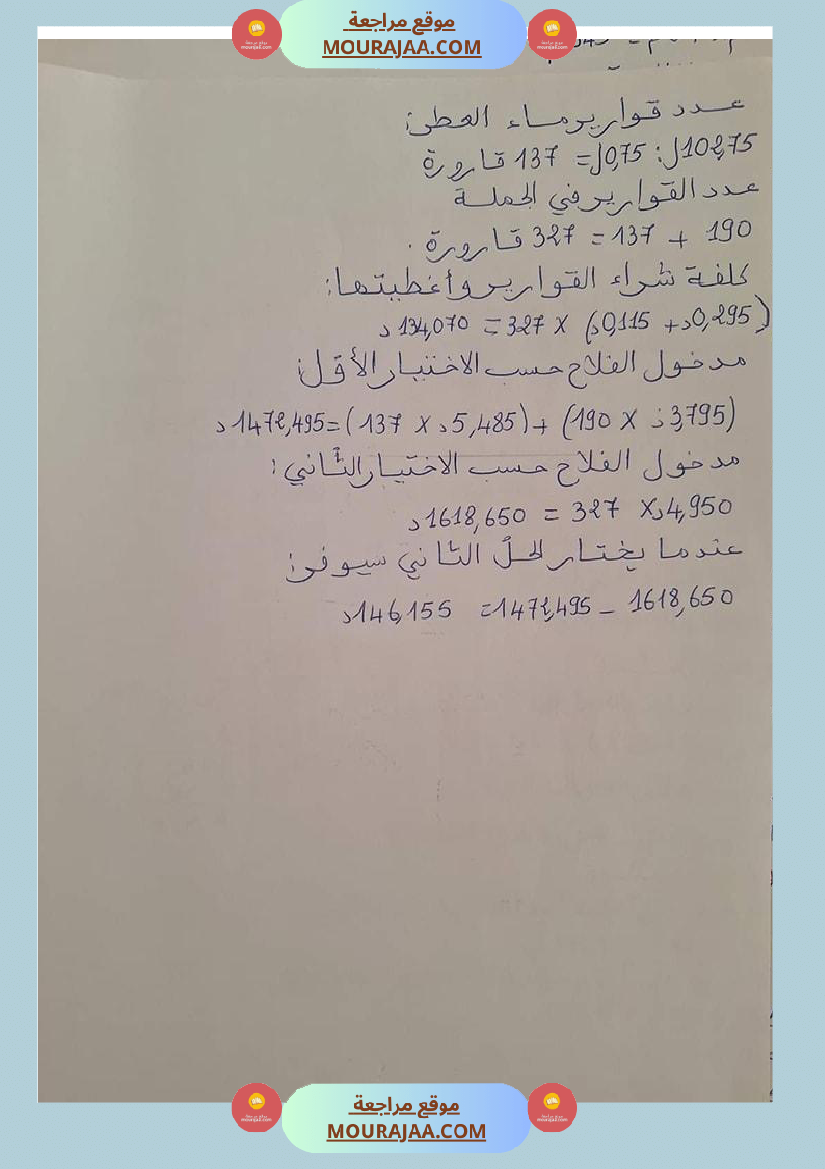 موقع مراجعة
MOURAJAA.COM
عدد قوارير ماء العطر:
102,75ل : 0,75ل = 137 قارورة
عدد القوارير في الجملة
190 + 137 = 327 قارورة.
كلفة شراء القوارير وأغطيتها:
(0,295د + 0,115د) × 327 = 134,070 د
مدخول الفلاح حسب الاختيار الأوّل:
(3,795د × 190) + (5,485د × 137) = 1472,495 د
مدخول الفلاح حسب الاختيار الثّاني:
4,950د × 327 = 1618,650 د
عندما يختار الحلّ الثاني سيوفر:
1618,650 – 1472,495 = 146,155 د
موقع مراجعة
MOURAJAA.COM